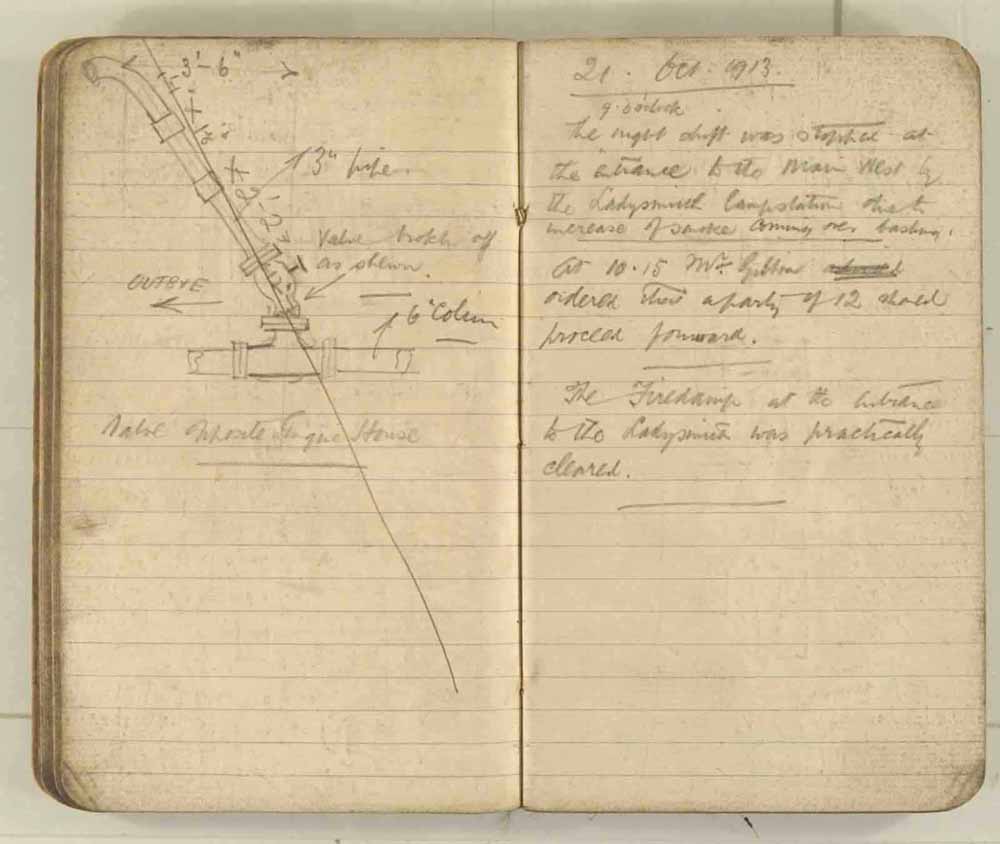 3'-6"
3" pipe.
Valve broken off
as shewn.
OUTBYE
6" Column
Valve opposite Engine House
21. Oct. 1913.
9 o'clock
The night shift was stopped at
the entrance to the Main West by
the Ladysmith Lampstation due to
increase of smoke coming over bashing.
At 10.15 Mr. Gibbon
ordered that a party of 12 should
proceed forward.
The Firedamp at the entrance
to the Ladysmith was practically
cleared.